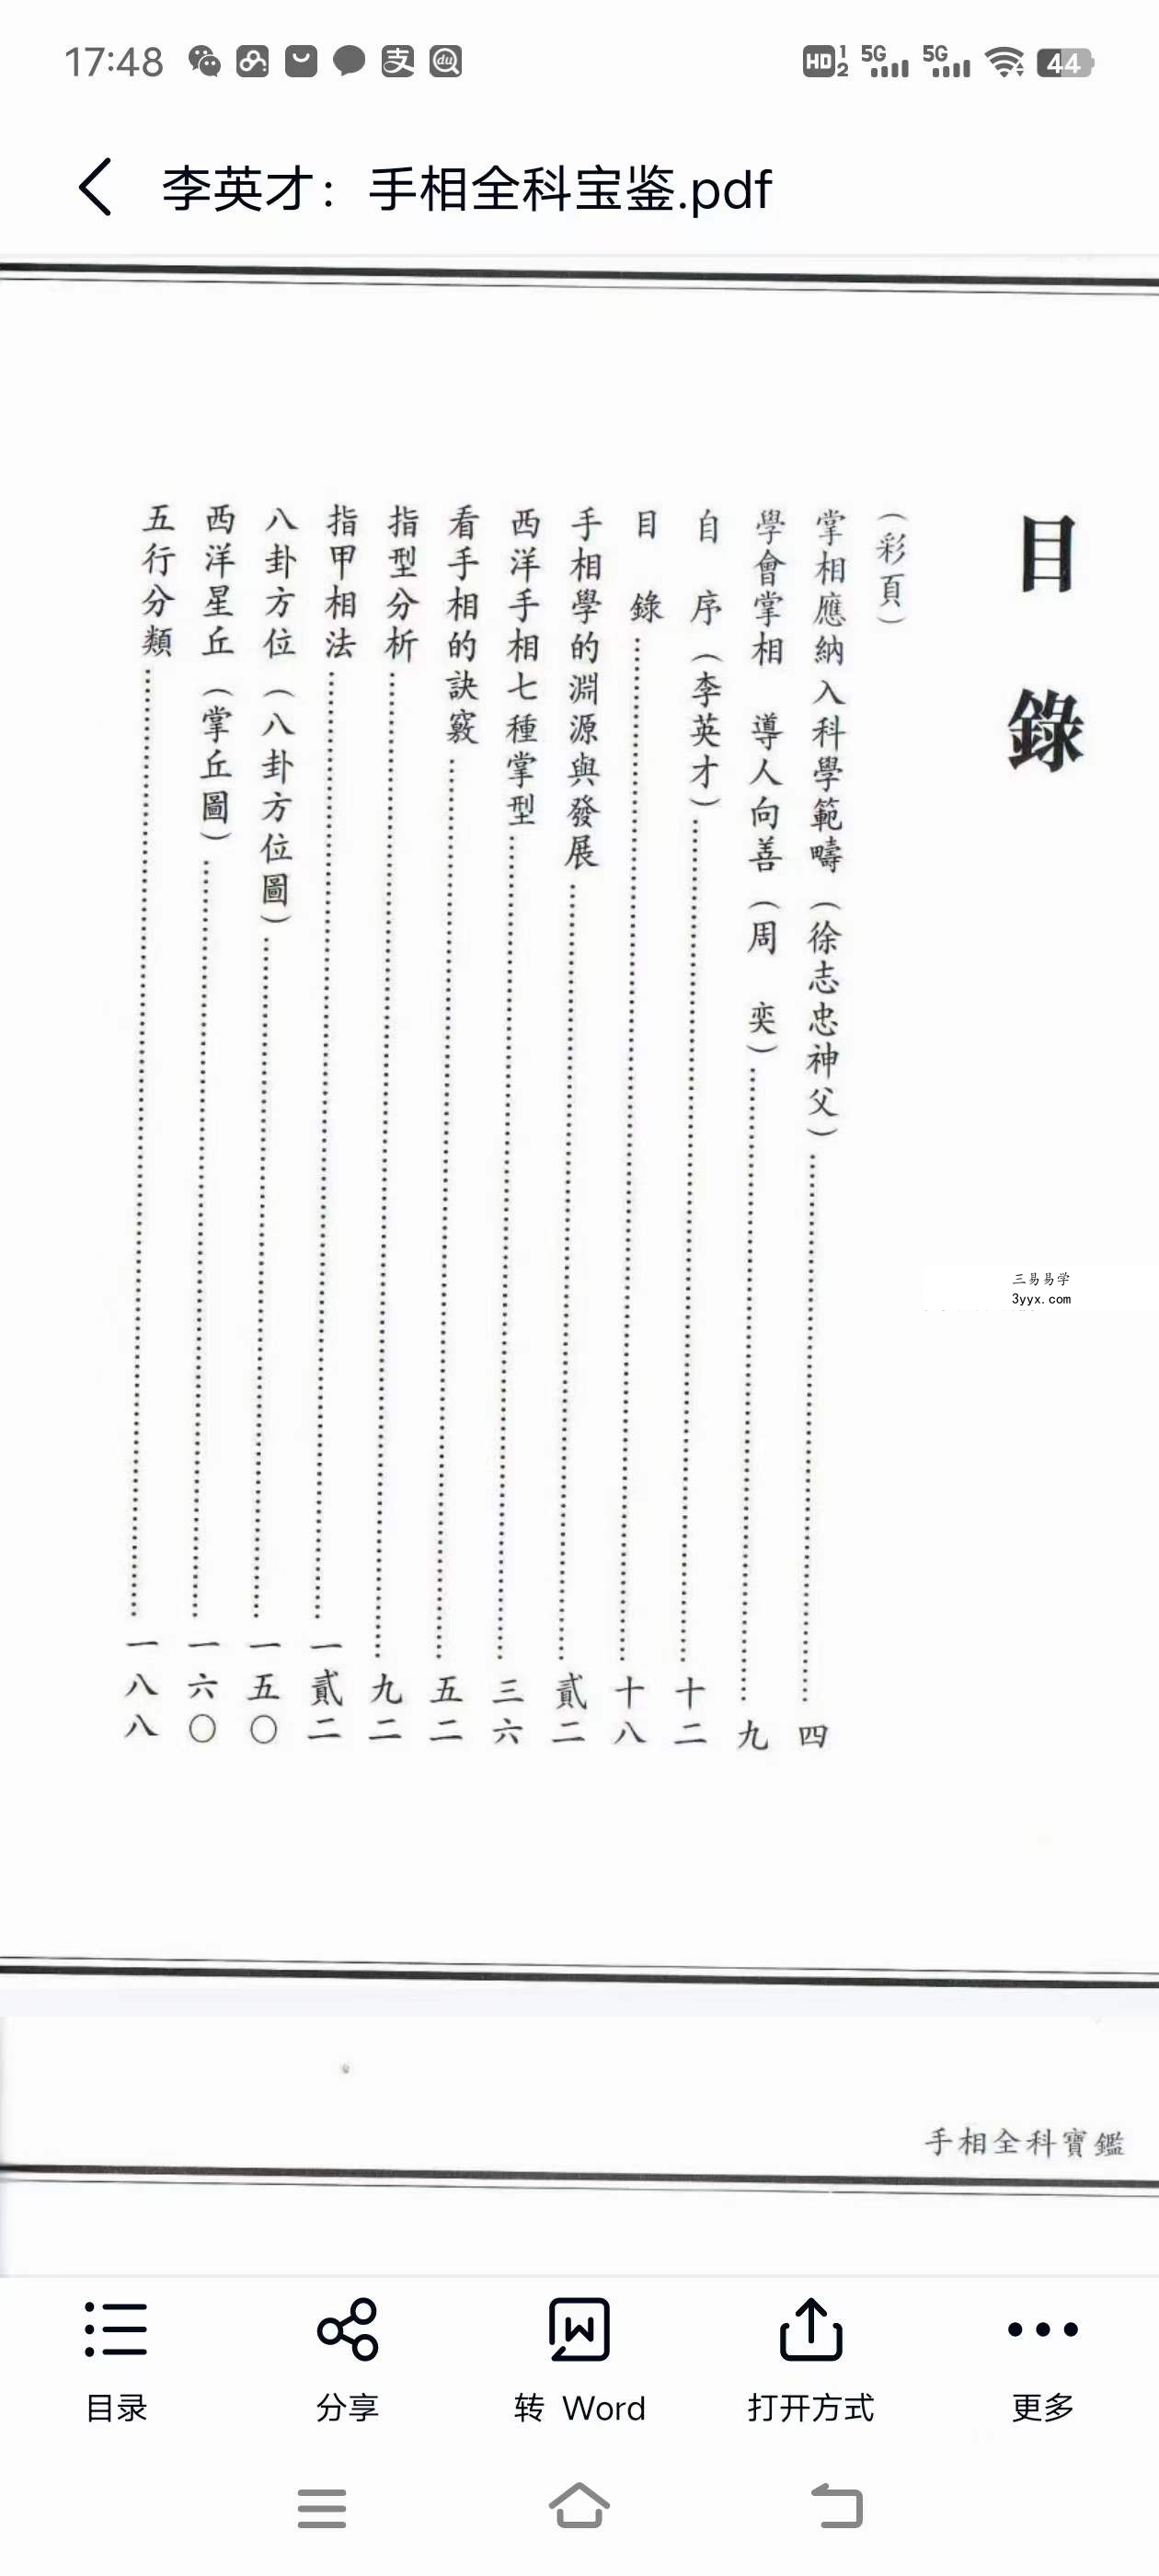 17:48
HD 1 2 5G 5G 44
李英才：手相全科宝鉴.pdf
目錄
（彩頁）
掌相應納入科學範疇（徐志忠神父）……四
學會掌相 導人向善（周 奕）……九
自 序（李英才）……十二
目 錄……十八
手相學的淵源與發展……貳二
西洋手相七種掌型……三六
看手相的訣竅……五二
指型分析……九二
指甲相法……一貳二
八卦方位（八卦方位圖）……一五〇
西洋星丘（掌丘圖）……一六〇
五行分類……一八八
三易易学
3yyx.com
手相全科寶鑑
目录 分享 转 Word 打开方式 更多